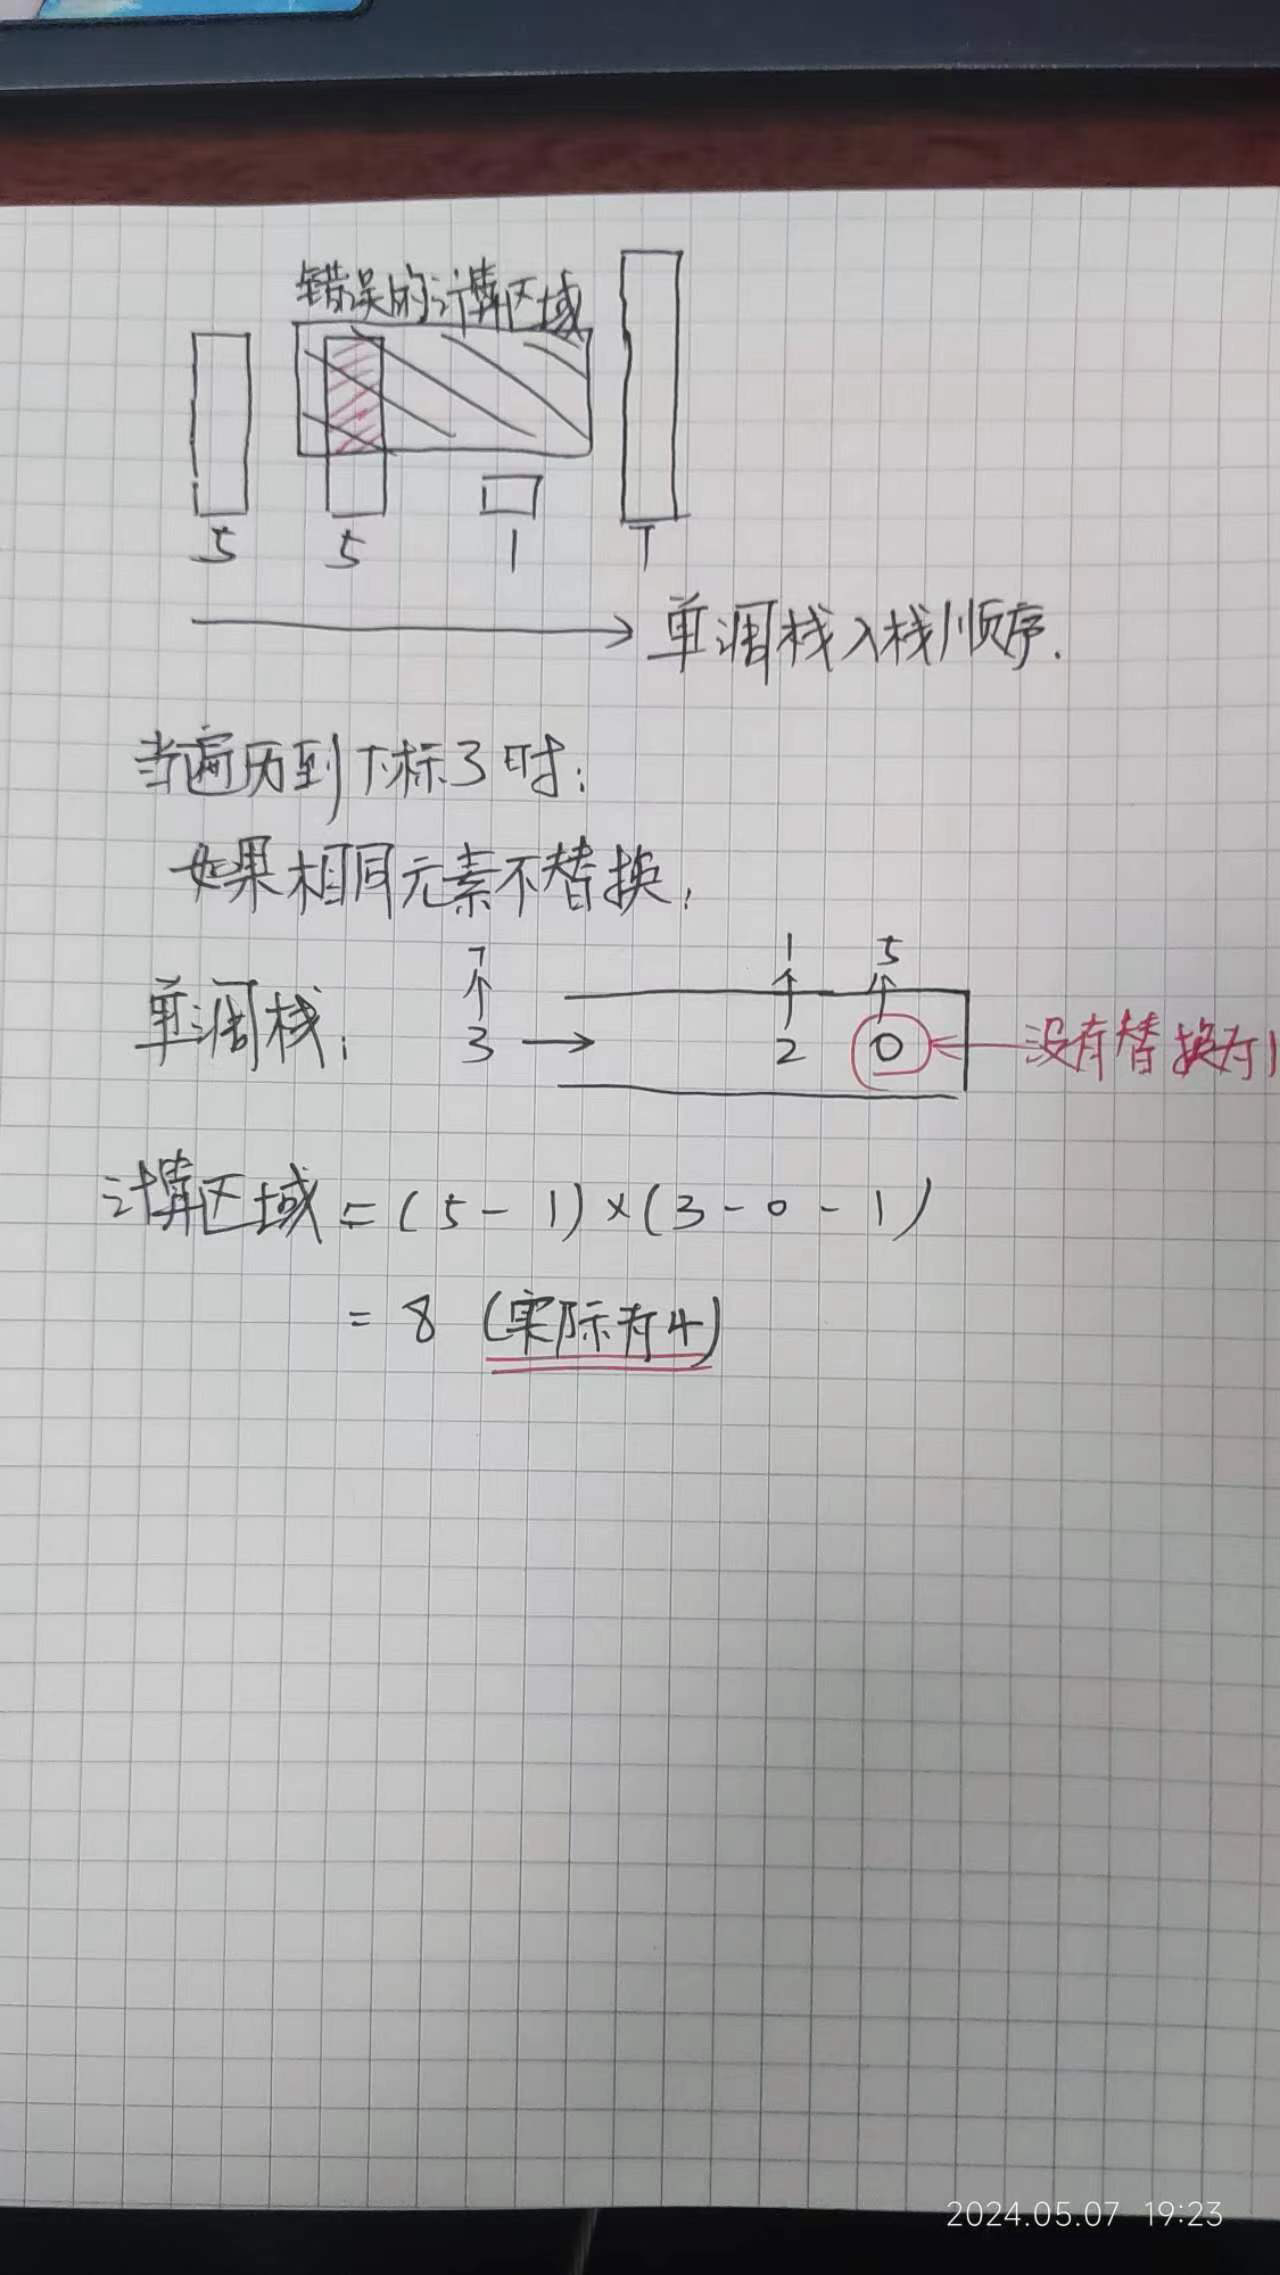 错误的计算区域
5 5 1 7
单调栈入栈顺序.
当遍历到下标3时:
如果相同元素不替换,
7 1 5
单调栈: 3 2 0 没有替换为1
计算区域 = (5-1)×(3-0-1)
= 8 (实际为4)
2024.05.07 19:23